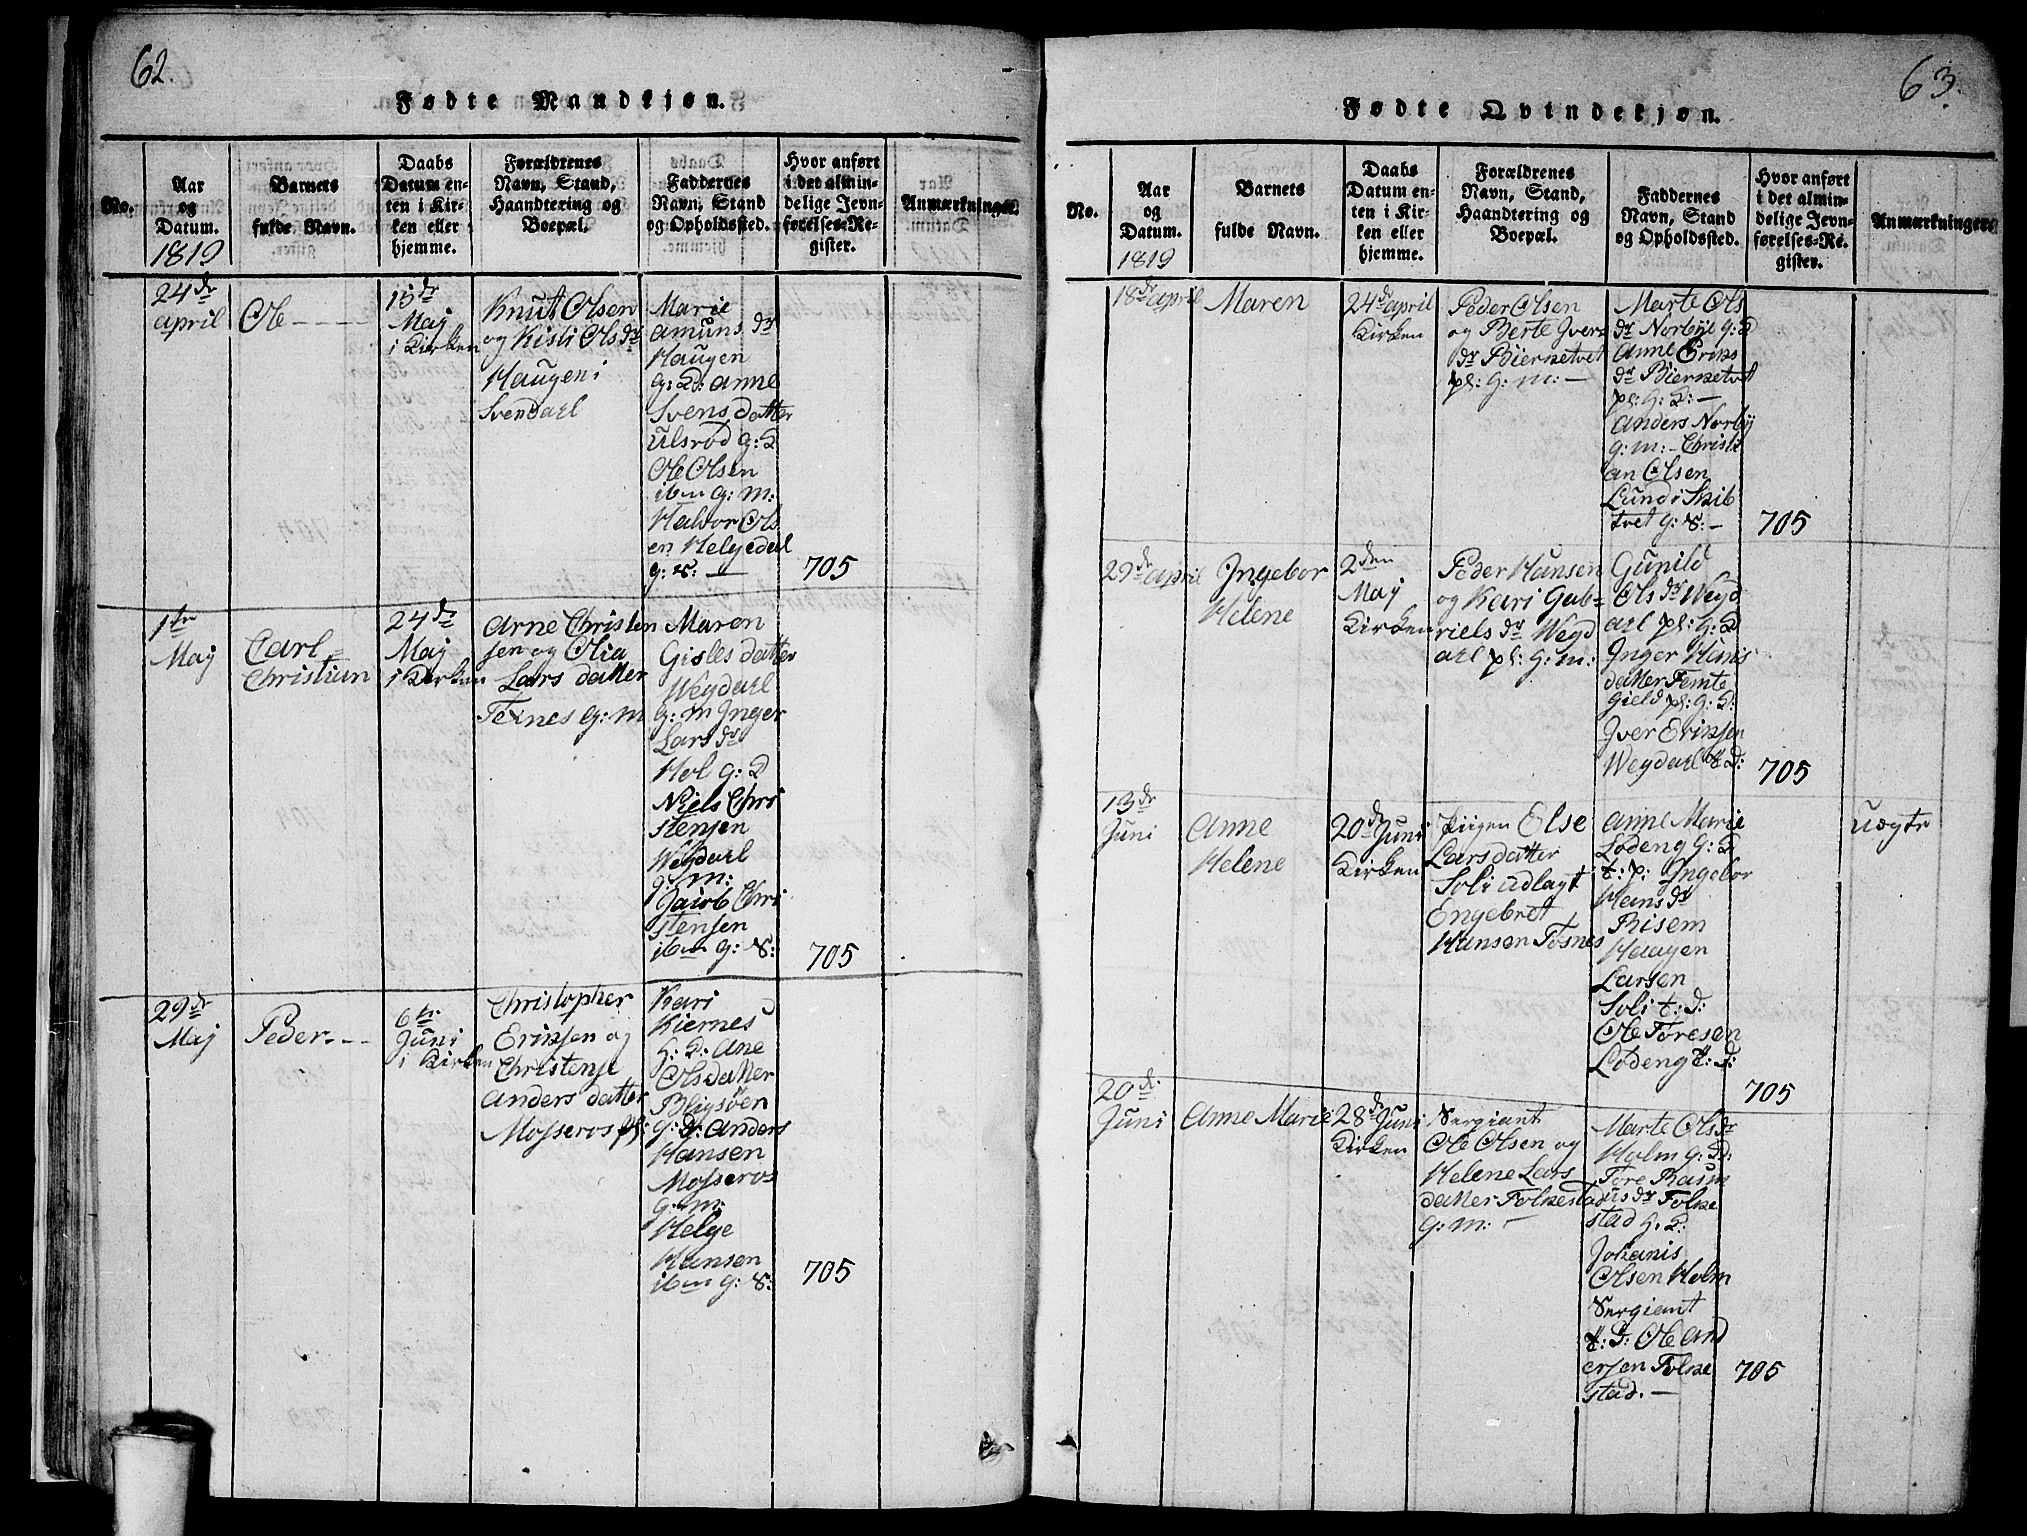 62.
Fødte Mandkjøn.
No.
Aar
og
Datum.
1819
Barnets
fulde Navn.
Daabs
Datum en-
ten i Kir-
ken eller
hjemme.
Forældrenes
Navn, Stand,
Haandtering og
Boepæl.
Faddernes
Navn, Stand
og Opholdssted.
Hvor anført
i det almin-
delige Jevn-
førelses-Re-
gister.
Anmærkninger.
24 dr
april
Ole
15 dr
Maj
i Kirken
Knut Olsen
og Kisti Ols dr
Haugen i
Svendal
Marie
amuns dr
Haugen
g: D: anne
Svens datter
Ulsrød g: D
Ole Olsen
ibm g: m:
Halvor Ols
en Helgedal
g: S: —
705
1te
Maj
Carl
Christian
24 dr
Maj
i Kirken
Arne Christen
sen og Olia
Lars datter
Teines g: m
Maren
Gisles datter
Wegdarl
g: m Inger
Lars dr
Hol g: D
Niels Chri
stensen
Wegdarl
g: m:
Jacob Chri
stensen
ibm g: S:
705
29 dr
Maj
Peder - - -
6te
Juni
i Kirken
Christopher
Eriksen og
Christense
anders datter
Mosseros pl:
Kari
Kiernes
g: D: ane
Ols datter
Bligsøen
g: D: anders
Hansen
Mosseros
g: m:
Helge
Hansen
ibm g: S:
705
63.
Fødte Qvindekjøn.
No.
Aar
og
Datum.
1819
Barnets
fulde Navn.
Daabs
Datum en-
ten i Kir-
ken eller
hjemme.
Forældrenes
Navn, Stand,
Haandtering og
Boepæl.
Faddernes
Navn, Stand
og Opholdssted.
Hvor anført
i det almin-
delige Jevn-
førelses-Re-
gister.
Anmærkninger.
18 dr april
Maren
24 d april
Kirken
Peder Olsen
og Berte Ivers
dr Biernetvet
pl: g: m: —
Marte Ols
dr Norbye g: D
Anne Eriks
dr Biernetvet
pl: g: D: —
Anders Norby
g: m: - Christi
an Olsen
Lund i Skib
tvet g: S: —
705
29 dr april
Ingebor
Helene
2den
Maj
Kirken
Peder Hansen
og Kari Gab=
riels dr Wegd
arl pl: g: m:
Gunild
Ols dr Wegd
arl pl: g: D
Inger Hans
datter Femte
gield pl: g: D:
Iver Eriksen
Wegdarl
705
13 dr
Juni
Anne
Helene
20 d Juni
Kirken
piigen Else
Lars datter
Soli udlagt
Engebret
Hansen Tosnes
Anne Marie
Lodeng g: D
t: p: Ingebor
Hans dr
Risem
Haagen
Larsen
Soli t: d:
Ole Toresen
Lodeng t: d:
705
Uægte
20 d.
Juni
Anne Marie
28 d Juni
Kirken
Sergiant
Ole Olsen og
Helene Lars
datter Folkestad
g: m: —
Marte Ols dr
Holm g: D:
Tore Rasm
us dr Folke
stad g: D:
Johanis
Olsen Holm
Sergiant
t: d: Ole And
ersen Folke
stad. —
705